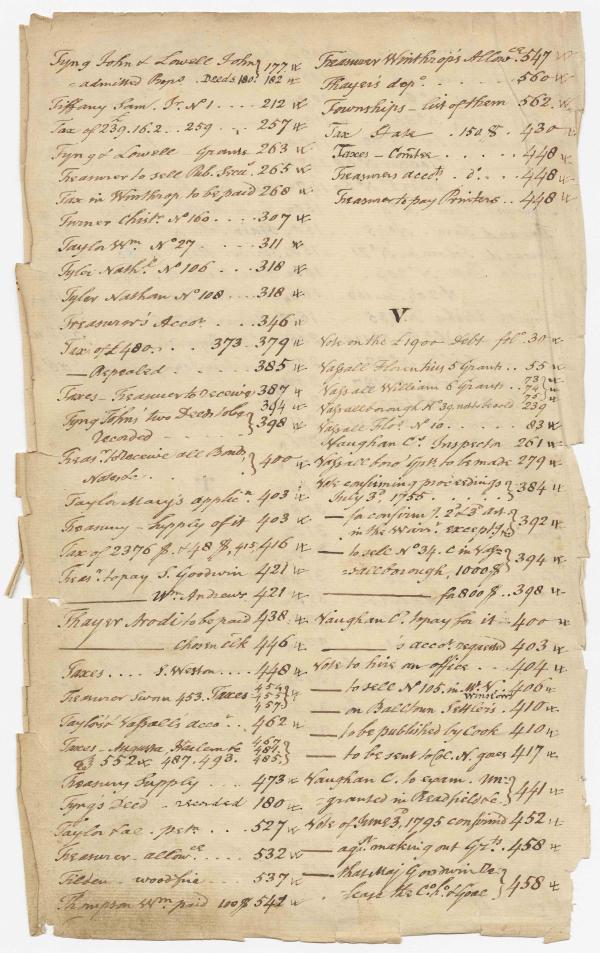 Tyng John & Lowell John 177
- admitted Props Deeds 180. 182
Tiffany Sam. Jr. No 1 . . . 212
Tax of 239.16.2 . 259 . . 257
Tyng & Lowell Grants 263
Treasurer to sell Pub. Secu. 265
Tax in Winthrop to be paid 268
Turner Christ. No 160 . . . 307
Taylor Wm No 27 . . . 311
Tyler Nath. No 106 . . . 318
Tyler Nathan No 108 . . . 318
Treasurer's Accot. . . . 346
Tax of £480. . . . 373 . 379
— Repealed . . . . 385
Taxes - Treasurer to receive 387
Tyng Johns' two Deeds to be 394
recorded 398
Treasr. to Receive all Bonds,
Notes &c 400
Taylor Mary's applicn. 403
Treasury - supply of it 403
Tax of 2376 $. & 48 $. 415, 416
Treasr. to pay S. Goodwin 421
——— Wm. Andrews 421
Thayer Arodi to be paid 438
——— chosen Clk 446
Taxes . . . . S. Weston . . . . 448
Treasurer Sworn 453. Taxes 454 455 457
Taylor & Vassalls accot. . . 462
Taxes - Augusta, 467 484 485
552 487. 493.
Treasury Supply . . . . 473
Tyng's Deed - recorded 180
Taylor petn. . . . 527
Treasurer - allowce . . . . 532
Tilden - woodfire . . . 537
Thompson Wm paid 100 $ 542
Treasurer Winthrop's Allowce. 547
Thayer's depo. . . . . 560
Townships - list of them 562
Tax State . 150 $ . . 430
Taxes - Comtee . . . 448
Treasurers accots. do. . . 448
Treasurer to pay Printers . . 448
V
Vote on the £1900 Debt fol. 30
Vassall Florentius 5 Grants . . 55
Vassall William 6 Grants . . 73 74 75
Vassallborough No 39 not be sold 239
Vassall Flo. No 10 . . . . 83
Vaughan C. Inspectr 261
Vassallboro' Grts. to be made 279
Vote confirming proceedings
July 3d. 1755 . . . . . 384
— for confirmg. 2d. & 3d. Art.
in the Warrt. except 392
— to sell No 34. C in Vas-
-sallborough, 1000 $ 394
——— for 800 $ . . 398
Vaughan C. to pay for it — 400
———'s accot. requested 403
Vote to hire an office . . . 404
— to sell No 105. in Mr. V. Winslow 406
— on Balltown Settlers . 410
— to be published by Cook 410
— to be sent to Col. N. goes 417
Vaughan C. to exam. un-
-granted in Readfield &c 441
Vote of June 3d, 1795 confirmd 452
— agst. making out Grts. 458
— that Maj Goodwin Re-
-lease the Co. ho. & Goal 458